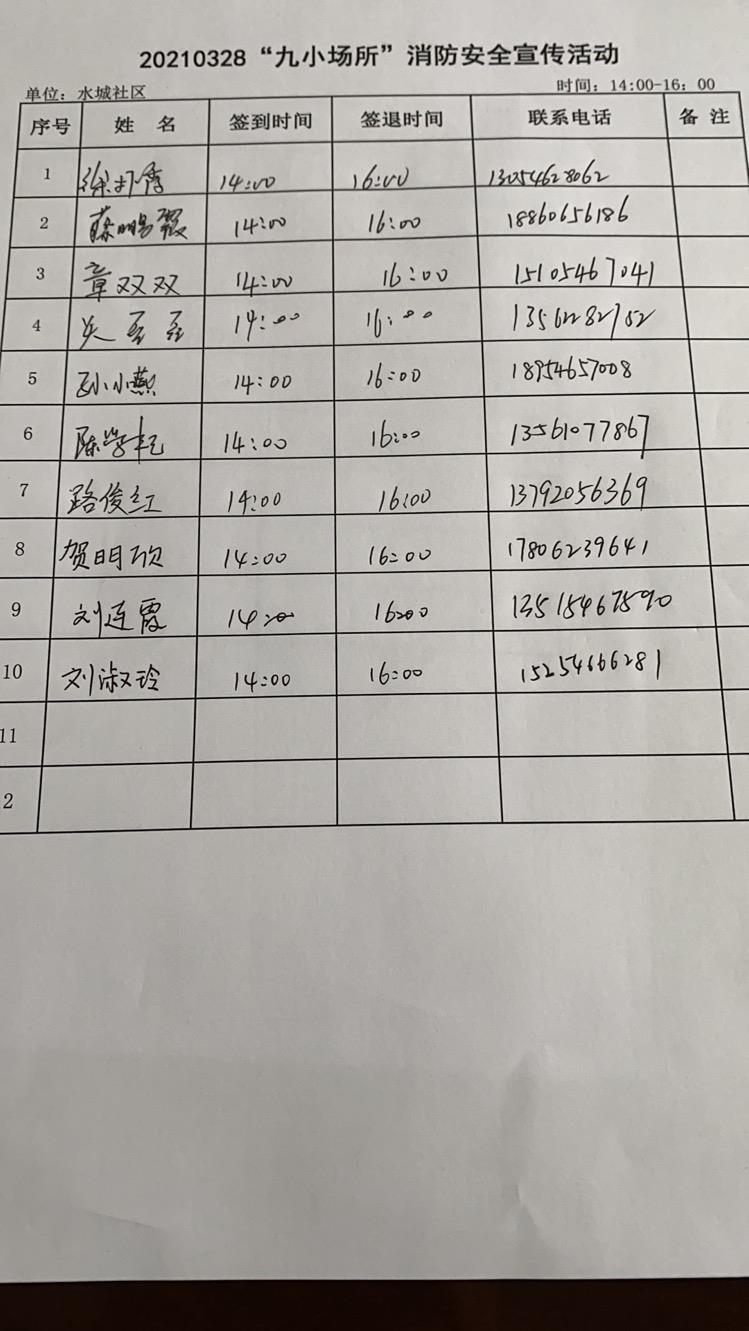 20210328“九小场所”消防安全宣传活动
单位：水城社区 时间：14:00-16：00
序号 姓 名 签到时间 签退时间 联系电话 备 注
1 14:00 16:00 13054628062
2 14:00 16:00 18860656186
3 章双双 14:00 16:00 15105467041
4 14:00 16:00 13562282752
5 孙小燕 14:00 16:00 18954657008
6 14:00 16:00 13561077867
7 路俊红 14:00 16:00 13792056369
8 贺明欣 14:00 16:00 17806239641
9 刘连霞 14:00 16:00 13515467590
10 刘淑玲 14:00 16:00 15254666281
11
2